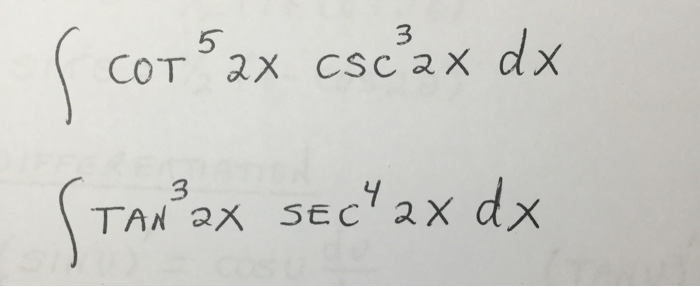 ∫ COT⁵ 2X CSC³ 2X dx
∫ TAN³ 2X SEC⁴ 2X dx